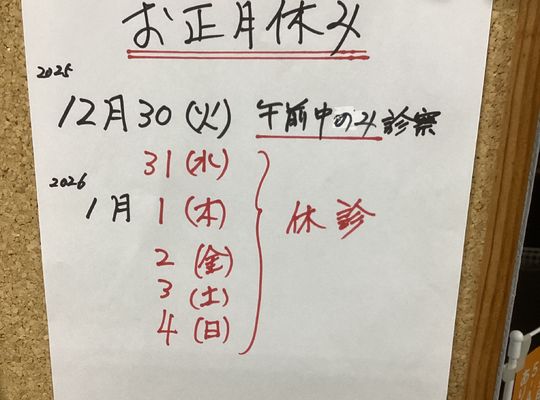 お正月休み
2025
12月30(火) 午前中のみ診察
31(水)
2026
1月 1(木) 休診
2(金)
3(土)
4(日)